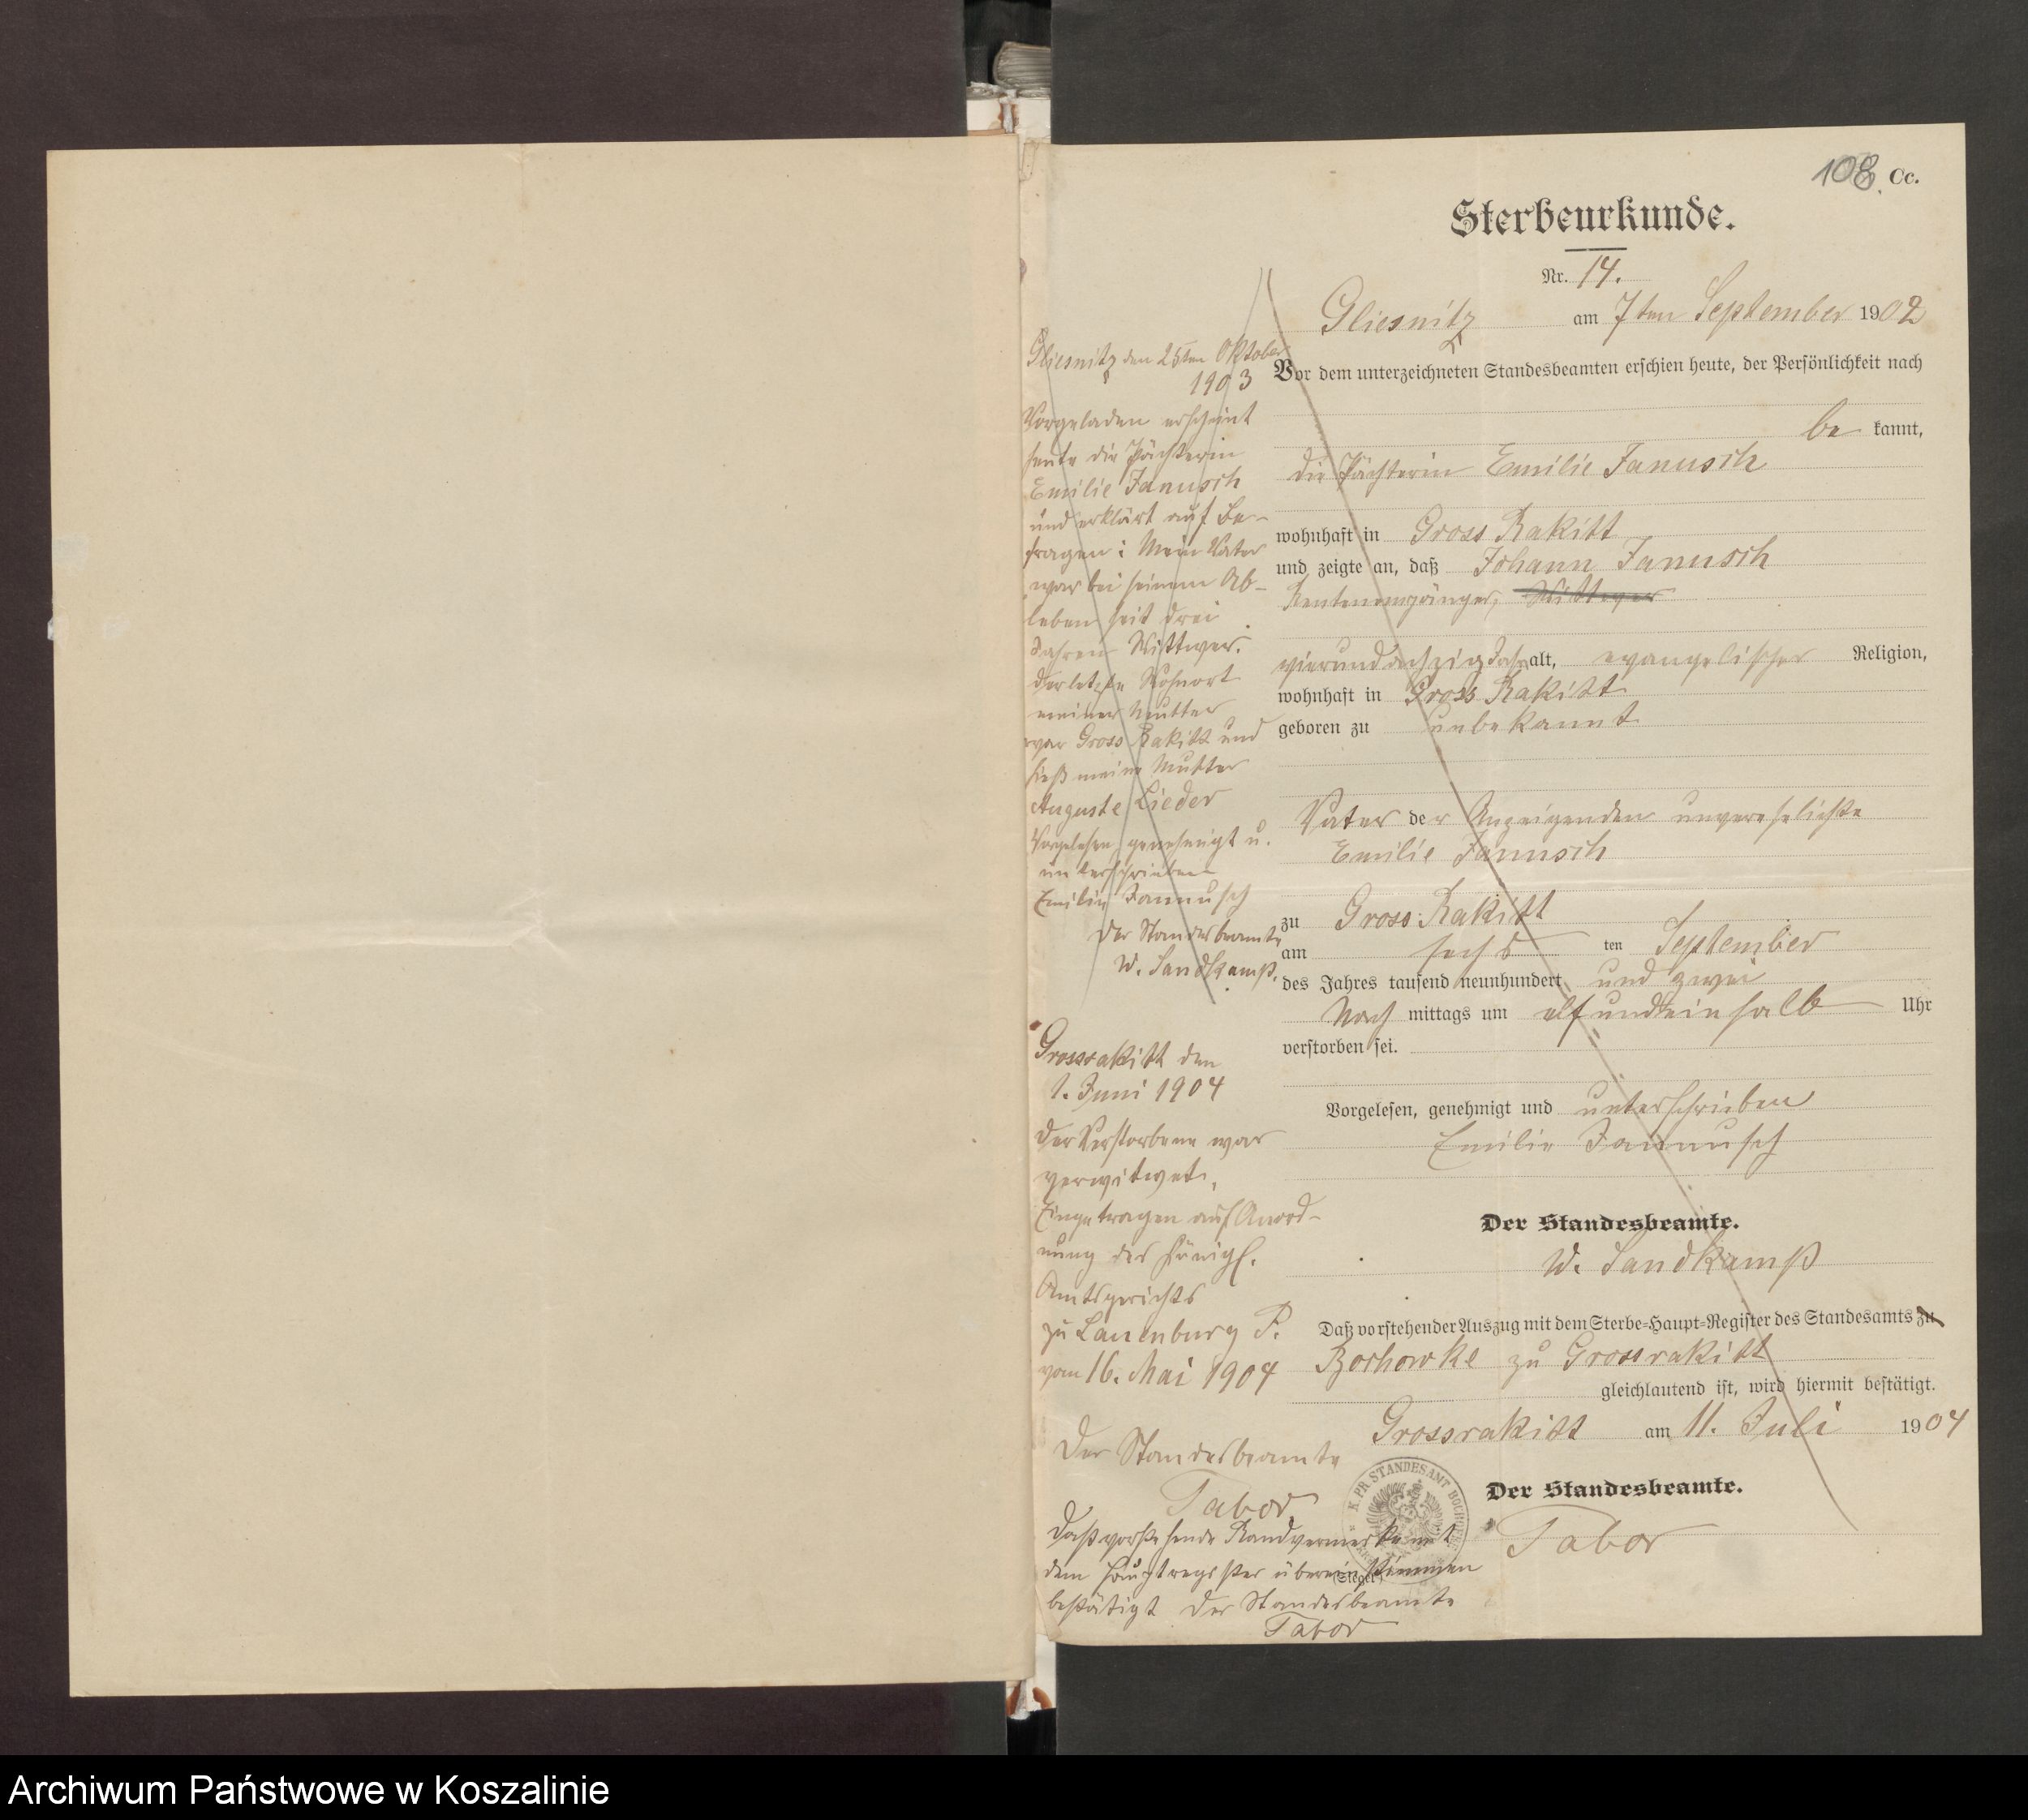 108. Cc.
Sterbeurkunde.
Nr. 14.
Gliesnitz am 7ten September 1902
Vor dem unterzeichneten Standesbeamten erschien heute, der Persönlichkeit nach
be kannt,
die Pächterin Emilie Janusch
wohnhaft in Gross Rakitt
und zeigte an, daß Johann Janusch
Rentenempfänger, Wittwer
vierundachzig Jahr alt, evangelischer Religion,
wohnhaft in Gross Rakitt
geboren zu unbekannt
Vater der Anzeigenden unverehelichte
Emilie Janusch
zu Gross Rakitt
am sechs ten September
des Jahres tausend neunhundert und zwei
Nach mittags um elfundeinhalb Uhr
verstorben sei.
Vorgelesen, genehmigt und unterschrieben
Emilie Jannusch
Der Standesbeamte.
W. Sandkamp
Daß vorstehender Auszug mit dem Sterbe-Haupt-Register des Standesamts zu
Bochowke zu Grossrakitt
gleichlautend ist, wird hiermit bestätigt.
Grossrakitt am 11. Juli 1904
Der Standesbeamte.
Tabor
K. PR. STANDESAMT
(Siegel)
Gliesnitz den 25ten Oktober
1903
Vorgeladen erscheint
heute die Pächterin
Emilie Janusch
und erklärt auf Be-
fragen: Mein Vater
war bei seinem Ab-
leben seit drei
Jahren Wittwer.
Der letzte Wohnort
meiner Mutter
war Gross Rakitt und
hieß meine Mutter
Auguste Lieder
Vorgelesen genehmigt u.
unterschrieben
Emilie Jannusch
Der Standesbeamte
W. Sandkamp.
Grossrakitt den
1. Juni 1904
Der Verstorbene war
verwitwet.
Eingetragen auf Anord-
nung des Königl.
Amtsgerichts
zu Lauenburg P.
vom 16. Mai 1904
Der Standesbeamte
Tabor
Daß vorstehende Randvermerke mit
dem Hauptregister übereinstimmen
bestätigt Der Standesbeamte
Tabor
Archiwum Państwowe w Koszalinie